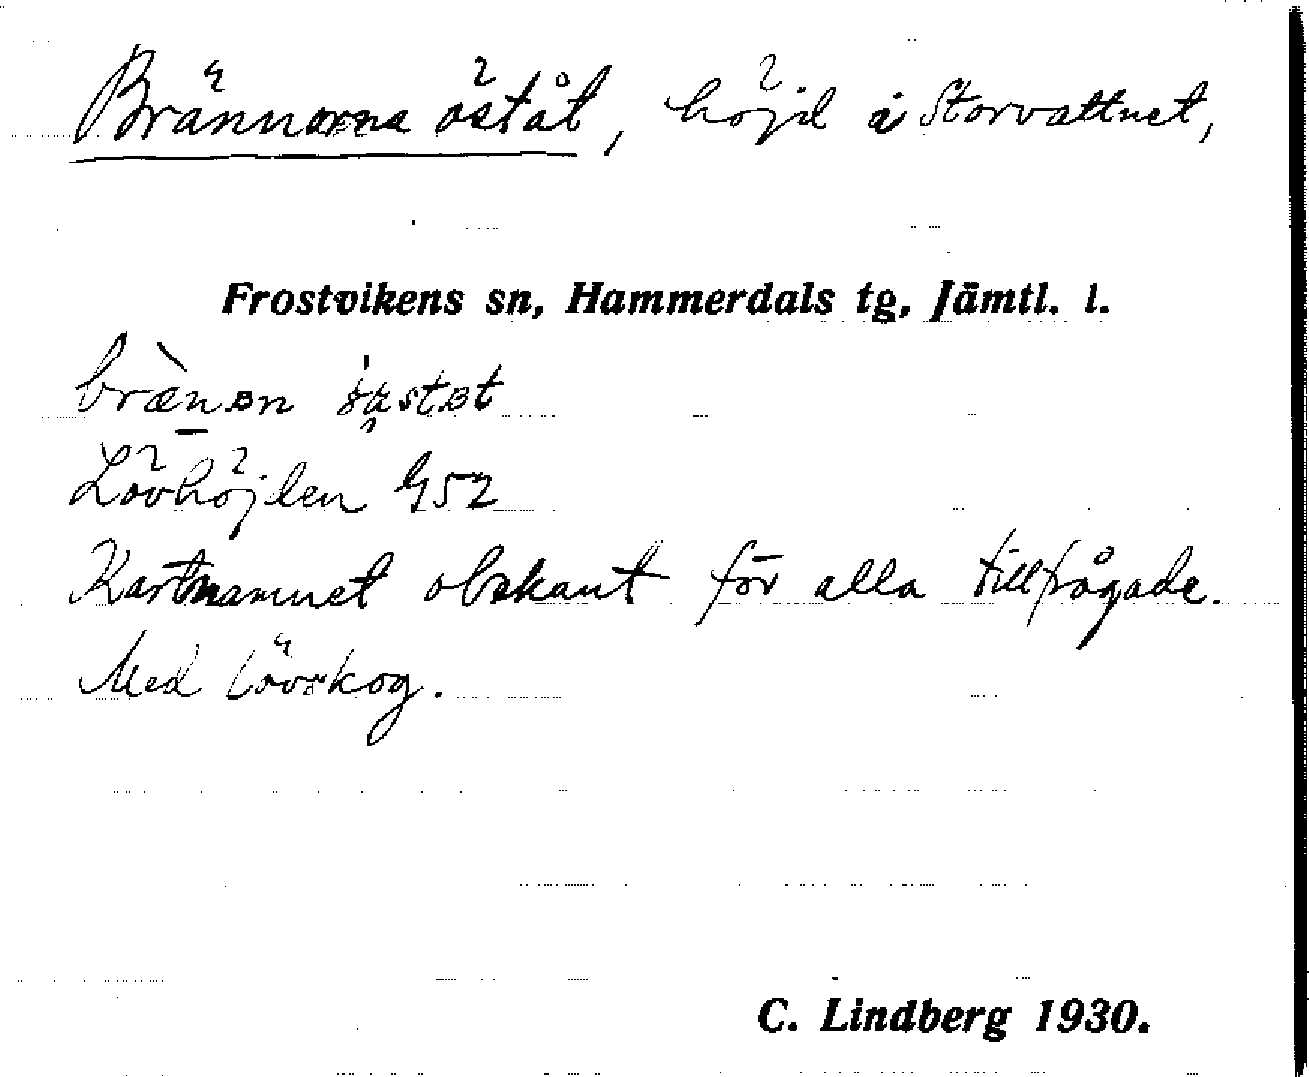 Brännorna öståt, höjd i Storvattnet,
Frostvikens sn, Hammerdals tg, Jämtl. l.
Lövhöjden G52
Kartnamnet obekant för alla tillfrågade.
Med lövskog.
C. Lindberg 1930.